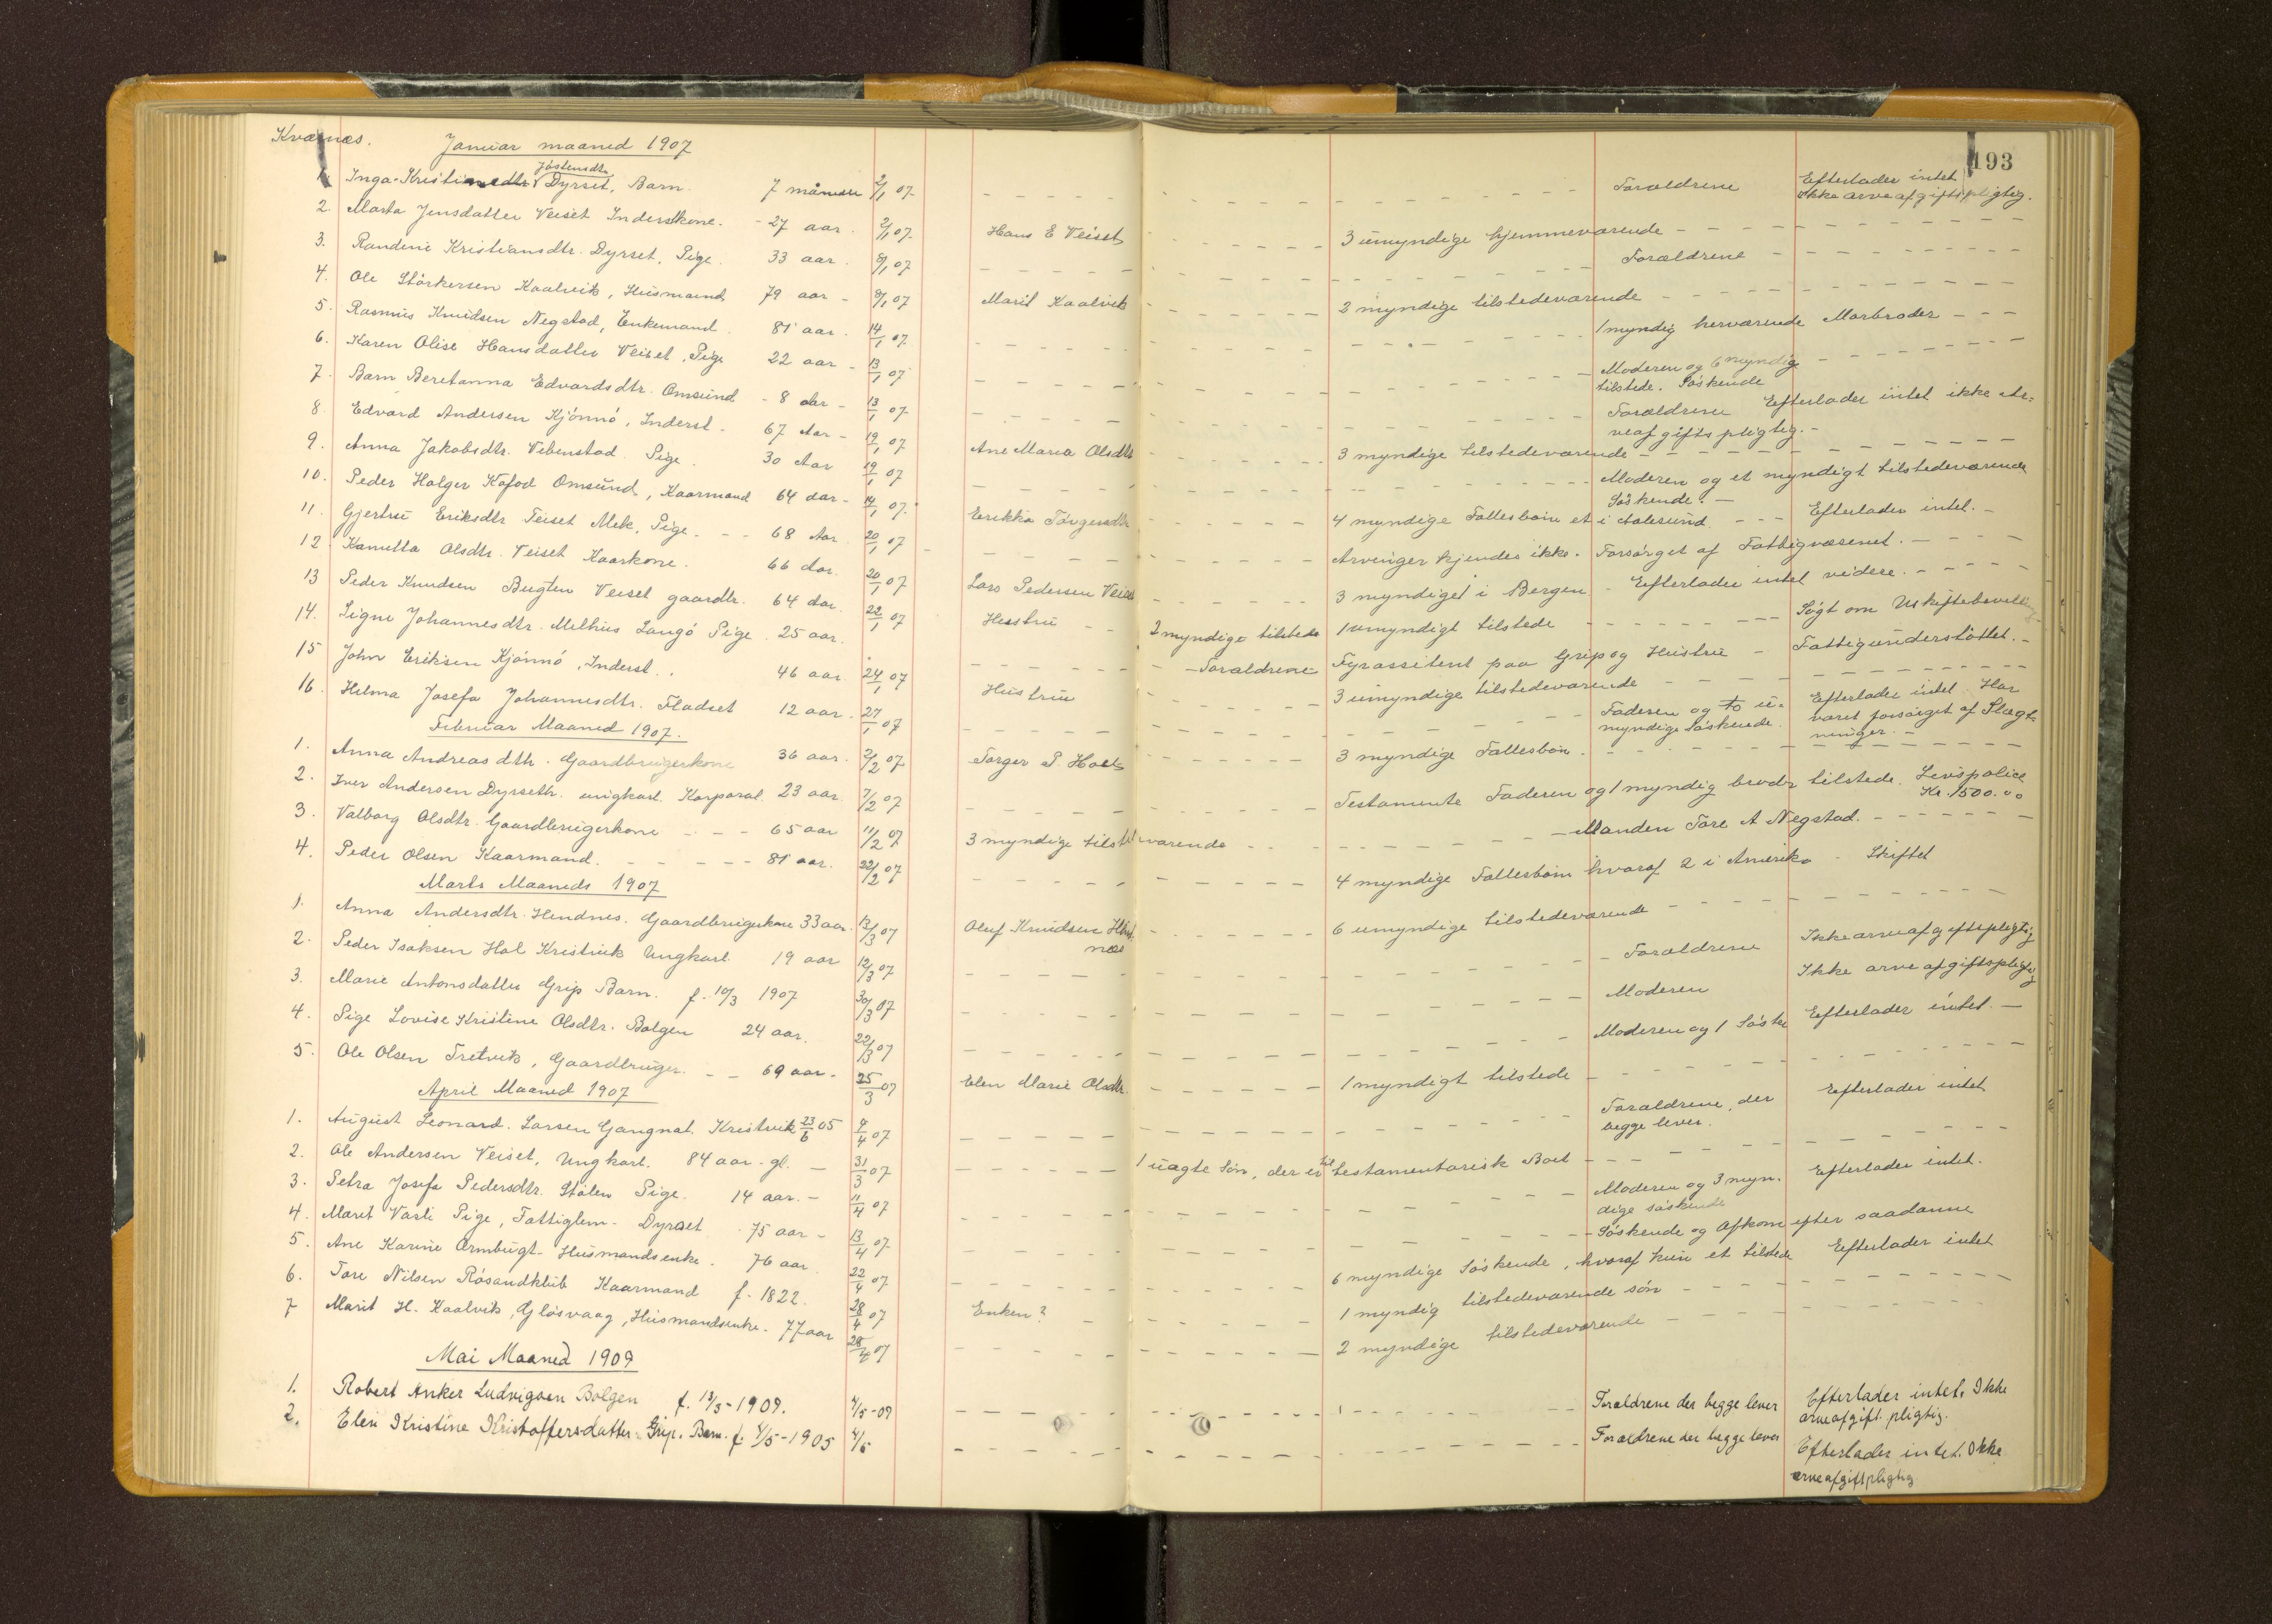 Kværnæs. Januar maaned 1907 193
Jostensdtr.
1. Inga Kristine Dyrset, Barn. 7 måneder 2/1 07. Forældrene Efterlader intet ikke arveafgiftspligtig.
2. Marta Jensdatter Veiset Inderstkone. 27 aar. 2/1 07. Hans E Veiset 3 umyndige hjemmeværende
3. Randine Kristiansdtr. Dyrset, Pige. 33 aar. 8/1 07 Forældrene
4. Ole Størkersen Kaalvik, Husmand 79 aar 8/1 07 Marit Kaalvik 2 myndige tilstedeværende
5. Rasmus Knudsen Negstad, Enkemand. 81 aar. 14/1 07. 1 myndig herværende Morbroder
6. Karen Olise Hansdatter Veiset, Pige 22 aar 13/1 07 Moderen og 6 myndig tilstede. Søskende
7. Barn Beretanna Edvardsdtr. Omsund 8 aar 13/1 07. Forældrene Efterlader intet ikke Arveafgiftspligtig.
8. Edvard Andersen Kjønnø, Inderst. 67 Aar 19/1 07 Ane Maria Olsdtr 3 myndige tilstedeværende
9. Anna Jakobsdtr. Vebenstad Pige. 30 Aar 19/1 07 Moderen og et myndigt tilstedeværende Søskende.
10. Peder Holger Kofod Omsund, Kaarmand 64 aar 14/1 07. Erikka Tørgersdtr 4 myndige Fællesbørn et i Aalesund. Efterlader intet.
11. Gjertru Eriksdtr Teiset Mek, Pige. 68 Aar. 20/1 07 Arvinger kjendes ikke. Forsørget af Fattigvæsenet.
12 Kanutta Olsdtr. Veiset Kaarkone. 66 aar. 20/1 07 Lars Pedersen Veiset 3 myndiget i Bergen Efterlader intet videre.
13 Peder Knudsen Bugten Veiset gaardbr. 64 aar. 22/1 07 Hustru 2 myndige tilstede 1 umyndigt tilstede Søgt om Uskiftebevilling
14. Signe Johannesdtr. Melhus Langø Pige. 25 aar. Forældrene Fyrassitent paa Grip og Hustru Fattigunderstøttet.
15 John Eriksen Kjønnø, Inderst. 46 aar. 24/1 07 Hustru 3 umyndige tilstedeværende
16. Hilma Josefa Johannesdtr. Fladset 12 aar. 27/1 07 Faderen og to umyndige Søskende. Efterlader intet. Har været forsørget af Slægtninger.
Februar Maaned 1907.
1. Anna Andreasdtr. Gaardbrugerkone 36 aar. 2/2 07 Torger P. Holt 3 myndige Fællesbørn.
2. Iver Andersen Dyrseth. ungkarl. Korporal. 23 aar. 7/2 07 Testamente Faderen og 1 myndig broder tilstede. Livspolice Kr. 1500.00
3. Valborg Olsdtr. Gaardbrugerkone 65 aar 11/2 07 3 myndige tilstedeværende Manden Tore A Negstad.
4. Peder Olsen Kaarmand. 81 aar. 22/2 07 4 myndige Fællesbørn hvoraf 2 i Amerika Skiftet
Marts Maaneds 1907
1. Anna Andersdtr. Hendnes. Gaardbrugerkone 33 aar. 13/3 07 Oluf Knudsen Hendnæs 6 umyndige tilstedeværende
2. Peder Isaksen Hol Kristvik Ungkarl. 19 aar 12/3 07 Forældrene Ikke arveafgiftspligtig
3. Marie Antonsdatter Grip Barn. f. 10/3 1907 30/3 07 Moderen Ikke arveafgiftspligtig
4. Pige Lovise Kristine Olsdtr. Bolgen 24 aar. 22/3 07 Moderen og 1 Søsk Efterlader intet.
5. Ole Olsen Tretvik, Gaardbruger. 69 aar. 25/3 07 Elen Marie Olsdtr. 1 myndigt tilstede
April Maaned 1907
1. August Leonard. Larsen Gangnat. Kristvik 23/6 05 4/4 07 Forældrene, der begge lever. Efterlader intet
2. Ole Andersen Veiset, Ungkarl. 84 aar. gl. 31/3 07 1 uægte Søn, der er til testamentarisk Boet
3. Petra Josefa Pedersdtr. Stølen Pige. 14 aar. 11/4 07 Moderen og 3 myndige søskende Efterlader intet.
4. Marit Vasli Pige, Fattiglem. Dyrset 75 aar 13/4 07 Søskende og Afkom efter saadanne
5. Ane Karine Ormbugt. Husmandsenke. 76 aar. 22/4 07 6 myndige Søskende, hvoraf kun et tilstede Efterlader intet
6. Tore Nilsen Røsandklub Kaarmand f. 1822. 28/4 07 Enken? 1 myndig tilstedeværende søn
7 Marit H. Kaalvik, Gløsvaag, Husmandsenke. 77 aar 28/4 07 2 myndige tilstedeværende
Mai Maaned 1909
1. Robert Anker Ludvigsen Bolgen f. 13/3-1909. 4/5-09 Forældrene der begge lever Efterlader intet. Ikke arveafgift.pligtig.
2. Elen Kristine Kristoffersdatter Grip. Barn. f. 4/5-1905 4/5 Forældrene der begge lever Efterlader intet. Ikke arveafgiftpligtig